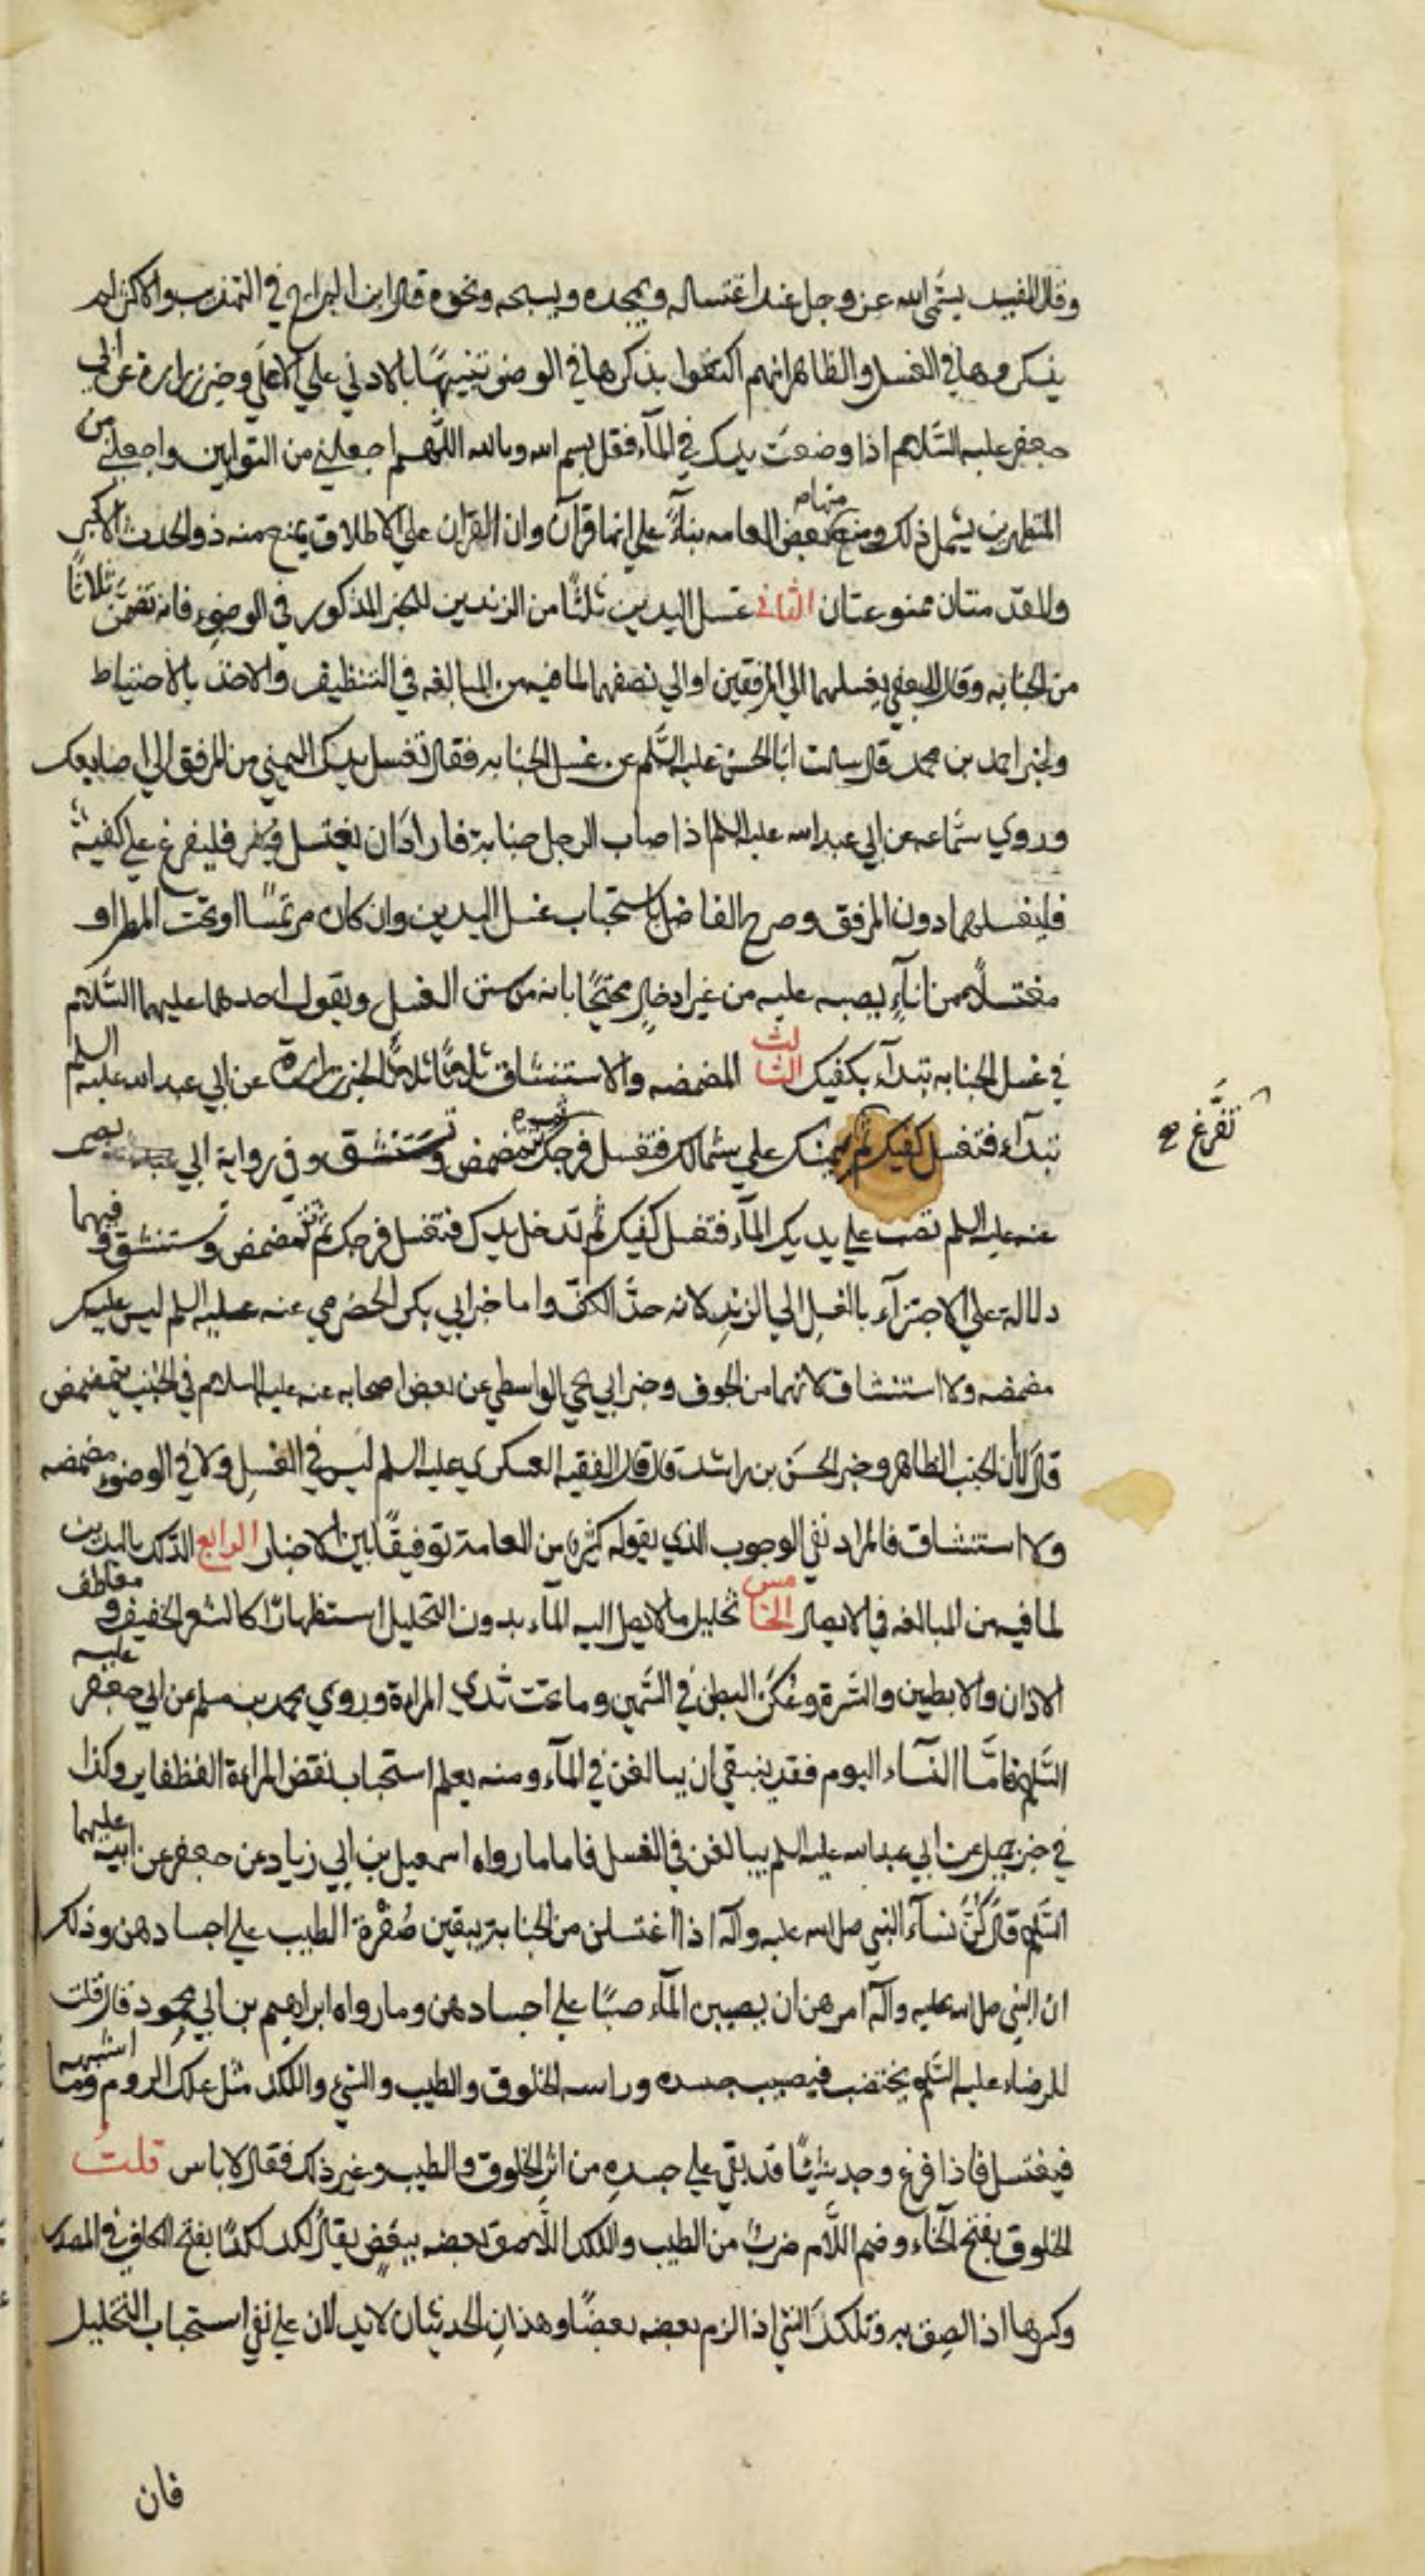 وقال المفيد يسمّى الله عز وجل عند اغتساله ويمجده ويسبحه ونحوه قال ابن البراج في المهذب والاكثر لم
يذكروها في الغسل والظاهر انهم اكتفوا بذكرها في الوضوء تنبيهًا بالادنى علي الاعلي وخبر زرارة عن ابي
جعفر عليه السّلام اذا وضعت يدك في المآء فقل بسم الله وبالله اللّهم اجعلني من التوابين واجعلني من
المتطهرين يشمل ذلك ومنع منها بعض العامه بنآءً علي انها قرآن وان القرآن علي الاطلاق يمنع منه ذو الحدث الاكبر
والمقدمتان ممنوعتان الثاني غسل اليدين ثلثًا من الزندين للخبر المذكور في الوضوء فانه تضمّن ثلاثًا
من الجنابه وقال الجعفي يغسلهما الي المرفقين او الي نصفهما لما فيه من المبالغه في التنظيف والاخذ بالاحتياط
ولخبر احمد بن محمد قال سالت ابا الحسن عليه السّلم عن غسل الجنابه فقال تغسل يدك اليمني من المرفق الي اصابعك
وروي سماعه عن ابي عبد الله عليه السلم اذا صاب الرجل جنابة فاراد ان يغتسل فليفرغ علي كفيه
فليغسلهما دون المرفق وصرح الفاضل باستحباب غسل اليدين وان كان مرتمسًا او تحت المطر او
مغتسلًا من انآءٍ يصبه عليه من غير ادخالٍ محتجًا بانه من سنن الغسل ويقول احدهما عليهما السّلام
في غسل الجنابه تبدآء بكفيك الثالث المضمضه والاستنشاق ثلاثًا ثلاثًا لخبر زرارة عن ابي عبد الله عليه السلم
تبدآء فتغسل كفيك ثم بيمينك علي شمالك فتغسل فرجك ثم تمضمض وتستنشق وفي رواية ابي بصير
تفرّغ صح
عنه عليه السلم تصب علي يديك المآء فتغسل كفيك ثم تدخل يدك فتغسل فرجك ثم تتمضمض وتستنشق وفيهما
دلالة علي الاجتزآء بالغسل الي الزند لانه حدّ الكفّ واما خبر ابي بكر الحضرمي عنه عليه السلم ليس عليك
مضمضه ولا استنشاق لانهما من الجوف وخبر ابي يحيي الواسطي عن بعض اصحابه عنه عليه السلام في الجنب يتمضمض
قال لا لأن الجنب الظاهر وخبر الحسن بن راشد قال قال الفقيه العسكري عليه السلم ليس في الغسل ولا في الوضوء مضمضه
ولا استنشاق فالمراد نفي الوجوب الذي يقوله كثير من العامة توفيقًا بين الاخبار الرابع الدّلك باليدين
لما فيه من المبالغه في الايصال الخامس تخليل ما لا يصل اليه المآء بدون التخليل استظهارًا كالشعر الخفيف ومعاطف
الاذان والابطين والسّرة وعُكَن البطن في السّمين وما تحت ثدي المراءة وروي محمد بن مسلم عن ابي جعفر عليه
السّلم فامّا النّسآء اليوم فقد ينبغي ان يبالغن في المآء ومنه يعلم استحباب نقض المراءة الظفاير وكذا
في خبر جميل عن ابي عبد الله عليه السلم يبالغن في الغسل فاما ما رواه اسمعيل بن ابي زياد عن جعفر عن ابيه عليهما
السّلم قال كُنّ نسآء النبي صل الله عليه وآله اذا اغتسلن من الجنابة يبقين صُفْرة الطيب علي اجسادهن وذلك
ان النبي صل الله عليه وآله امرهن ان يصببن المآء صبًّا علي اجسادهن وما رواه ابراهيم بن ابي محمود قال قلت
للرضاء عليه السّلم يختضب فيصيب جسده وراسه الخلوق والطيب والشئ واللكد مثل علك الروم وما اشبهه
فيغتسل فاذا فرغ وجد شيئًا قد بقي علي جسدهِ من اثر الخلوق والطيب وغير ذلك فقال لا باس قلتُ
الخلوق بفتح الخآء وضم اللّام ضربٌ من الطيب واللكد اللّاصق بعضه ببعضٍ يقال لكد لكدًا بفتح الكاف في المصدر
وكسرها اذا لصِق به وتلكدَ الشئ اذا لزم بعضه بعضًا وهذانِ الحديثان لا يدلان علي نفي استحباب التخليل
فان